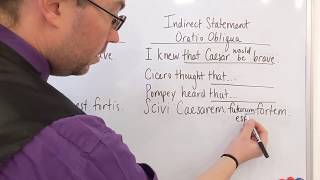 Indirect Statement
Oratio Obliqua
I knew that Caesar would be brave
Cicero thought that...
Pompey heard that...
est fortis.
Scivi Caesarem futurum fortem.
esse